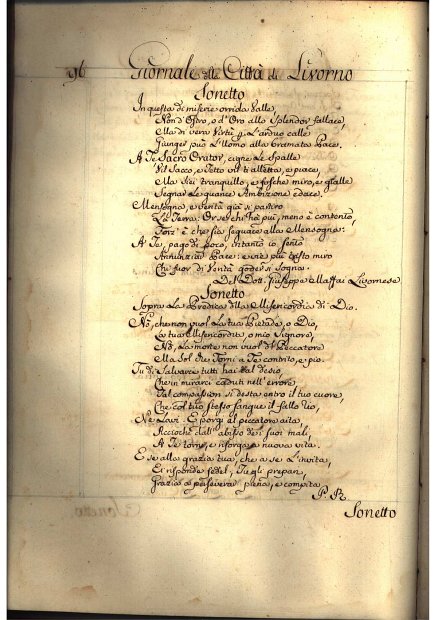 96 Giornale della Città di Livorno
Sonetto
In questa di miserie orrida Valle,
Non d'Ostro, o d'Oro allo Splendor fallace,
Ma di vera Virtù p. l'arduo calle
Giunger può l'Uomo alla bramata Pace.
A Te Sacro Orator, cigne Le Spalle
Vil Sacco, e Tetto vil ti alletta, e piace,
Ma Sei tranquillo, e fosche miro, e gialle
Segnar Le guance Ambizione edace.
Menzogna, e Verità già si partiro
La Terra: Or se chi hà più, meno è contento,
Forz' è che sia seguace alla Menzogna:
A Te, pago di poco, intanto io sento
Annunziar Pace: e vie più tristo miro
Che fuor di Verità goder si sogna.
Del Dott. Giuseppe Maffai Livornese
Sonetto
Sopra La Predica della Misericordia di Dio.
Nò, che non vuol La tua Pietade, o Dio,
La tua Misericordia, o mio Signore,
Nò, La morte non vuol del Peccatore
Ma Sol che Torni a Te contrito, e pio.
Tu di Salvare tutti hai tal desio,
Che in mirarci caduti nell'errore,
Tal compassion si desta entro il tuo cuore,
Che col tuo stesso sangue il fallo rio,
Ne Lavi. E porgi al peccatore aita,
Acciochè dall'abisso de i suoi mali,
A Te torni, e risorga a nuova vita.
E se alla grazia tua, che a se L'invita,
Ei risponde fedel, Tu gli prepari,
Grazia di perseverar piena, e compita
P. R.
Sonetto